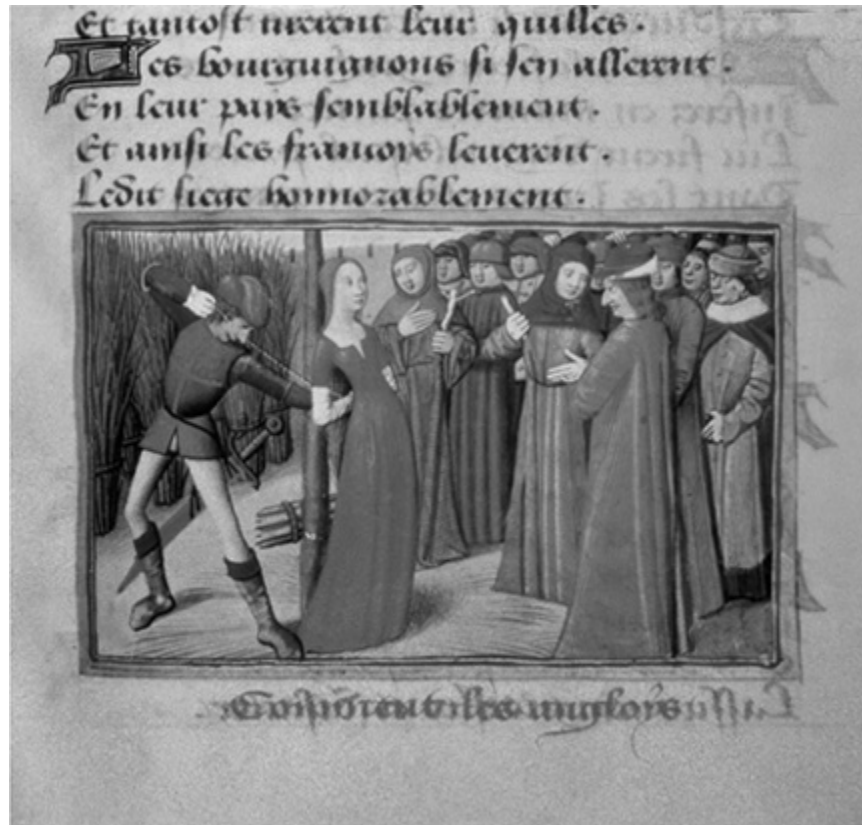 Et tantost tirerent leur quilles.
Les bourguignons si sen allerent.
En leur pays semblablement.
Et ainsi les francoys leuerent.
Ledit siege honnorablement.
les angloys